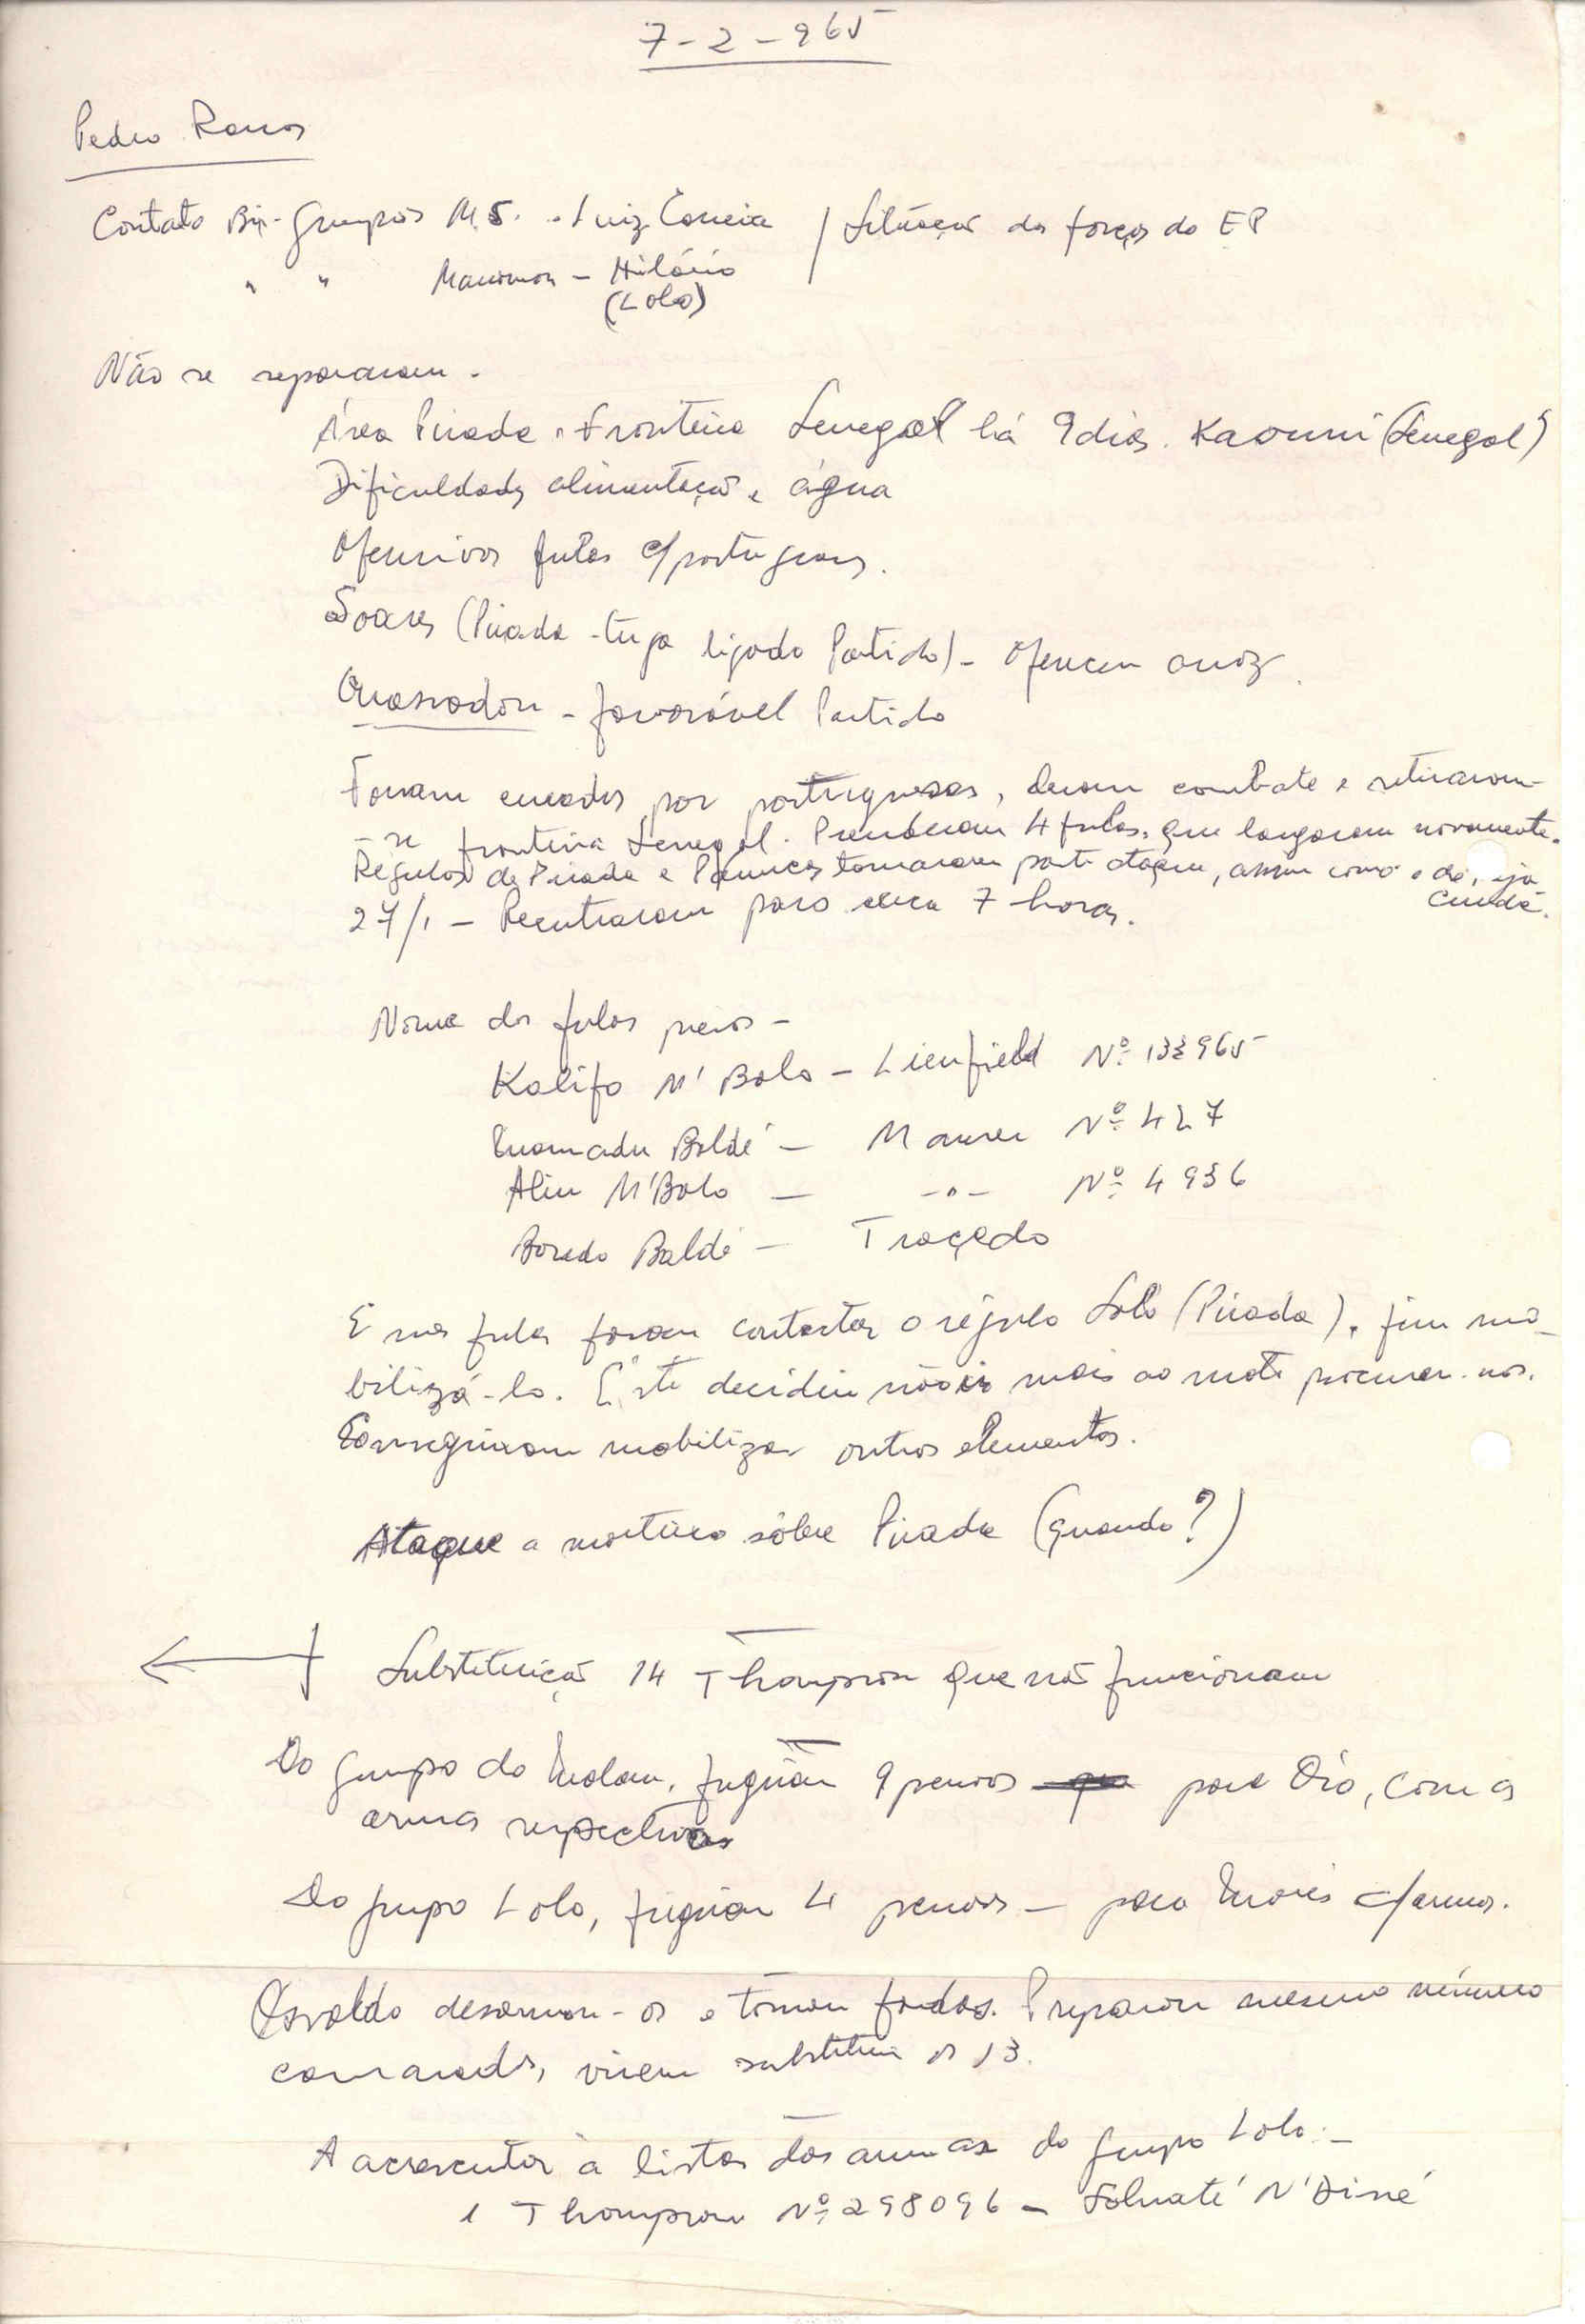 7-2-965
Pedro Ramos
Contato Bi-Grupos M.S. - Luiz Correia / Situação das forças do EP
" " - Hilário
(Lolo)
Não se separaram -
Área Pirada - Fronteira Senegal há 9 dias. Kaouni (Senegal)
Dificuldades alimentação e água
Ofensivas fulas c/ portugueses.
Soares (Pirada - tuga ligado Partido) - Oferecem arroz.
- favorável Partido
Foram cercados por portugueses, deram combate e retiraram-
-se fronteira Senegal. Prenderam 4 fulas, que largaram novamente.
Régulos de Pirada e tomaram parte ataque, assim como o de
cundá.
27/1 - Reentraram para cerca 7 horas.
Nome dos fulas presos -
Kalifa M'Balo - Lienfield Nº 133965
Mamadu Baldé - Mauser Nº 427
Aliu M'Balo - -"- Nº 4936
Boredo Baldé - Traçado
Esses fulas foram contactar o régulo Solo (Pirada), fim mo-
bilizá-lo. Este decidiu não ir mais ao mato procurar-nos.
Conseguiram mobilizar outros elementos.
Ataque a morteiro sôbre Pirada (quando?)
Substituição 14 Thompson que não funcionam
Do grupo do Malam, fugiram 9 pessoas para Oio, com as
armas respectivas
Do grupo Lolo, fugiram 4 pessoas - para Morés c/ armas.
Osvaldo desarmou-os e tomou fardas. Preparou mesmo número
camaradas, virem substituir os 13.
A acrescentar à lista das armas do grupo Lolo: -
1 Thompson Nº 298096 - Soluaté N'Diné